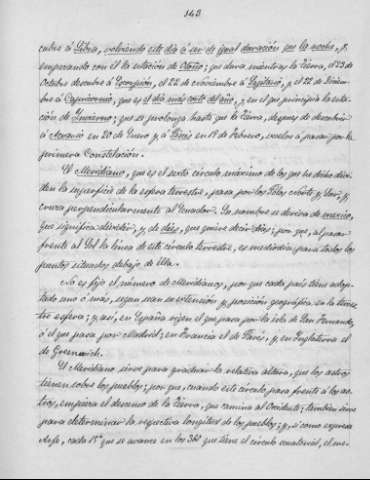 143
cubre á Libra, volviendo este dia á ser de igual duracion que la noche, y,
empezando con él la estacion de Otoño; que dura mientras la Tierra, el 23 de
Octubre descubre á Escorpión, el 22 de Noviembre á Sagitario, y el 22 de Diciem
bre á Capricornio, que es el dia más corto del año, y en el que principia la esta
ción de Invierno; que se prolonga hasta que la Tierra, despues de descubrir
á Acuario en 20 de Enero y á Piscis en 19 de Febrero, vuelve á pasar por la
primera Constelación.
El Meridiano, que es el sexto circulo máximo de los que he dicho divi
den la superficie de la esfera terrestre, pasa por los Polos Norte y Sur, y
cruza perpendicularmente al Ecuador. Su nombre se deriva de
que significa dividir, y de dies, que quiere decir dias; por que, al pasar
frente al Sol la linea de este circulo terrestre, es mediodia para todos los
puntos situados debajo de ella.
No es fijo el número de Meridianos, por que cada pais tiene adop
tado uno ó más, segun sean su extension y posición geográfica en la terres
tre esfera; y así, en España rigen el que pasa por la isla de San Fernando,
ó el que pasa por Madrid; en Francia el de Paris, y en Inglaterra el
de Greenwich.
El Meridiano sirve para graduar la relativa altura, que los astros
tienen sobre los pueblos; por que, cuando este circulo pasa frente á los as
tros, empieza el descenso de la Tierra, que camina al Occidente; tambien sirve
para determinar la respectiva longitud de los pueblos; y, si como expresa
cada 15° que se avance en los 360 que tiene el circulo ecuatorial, el me-